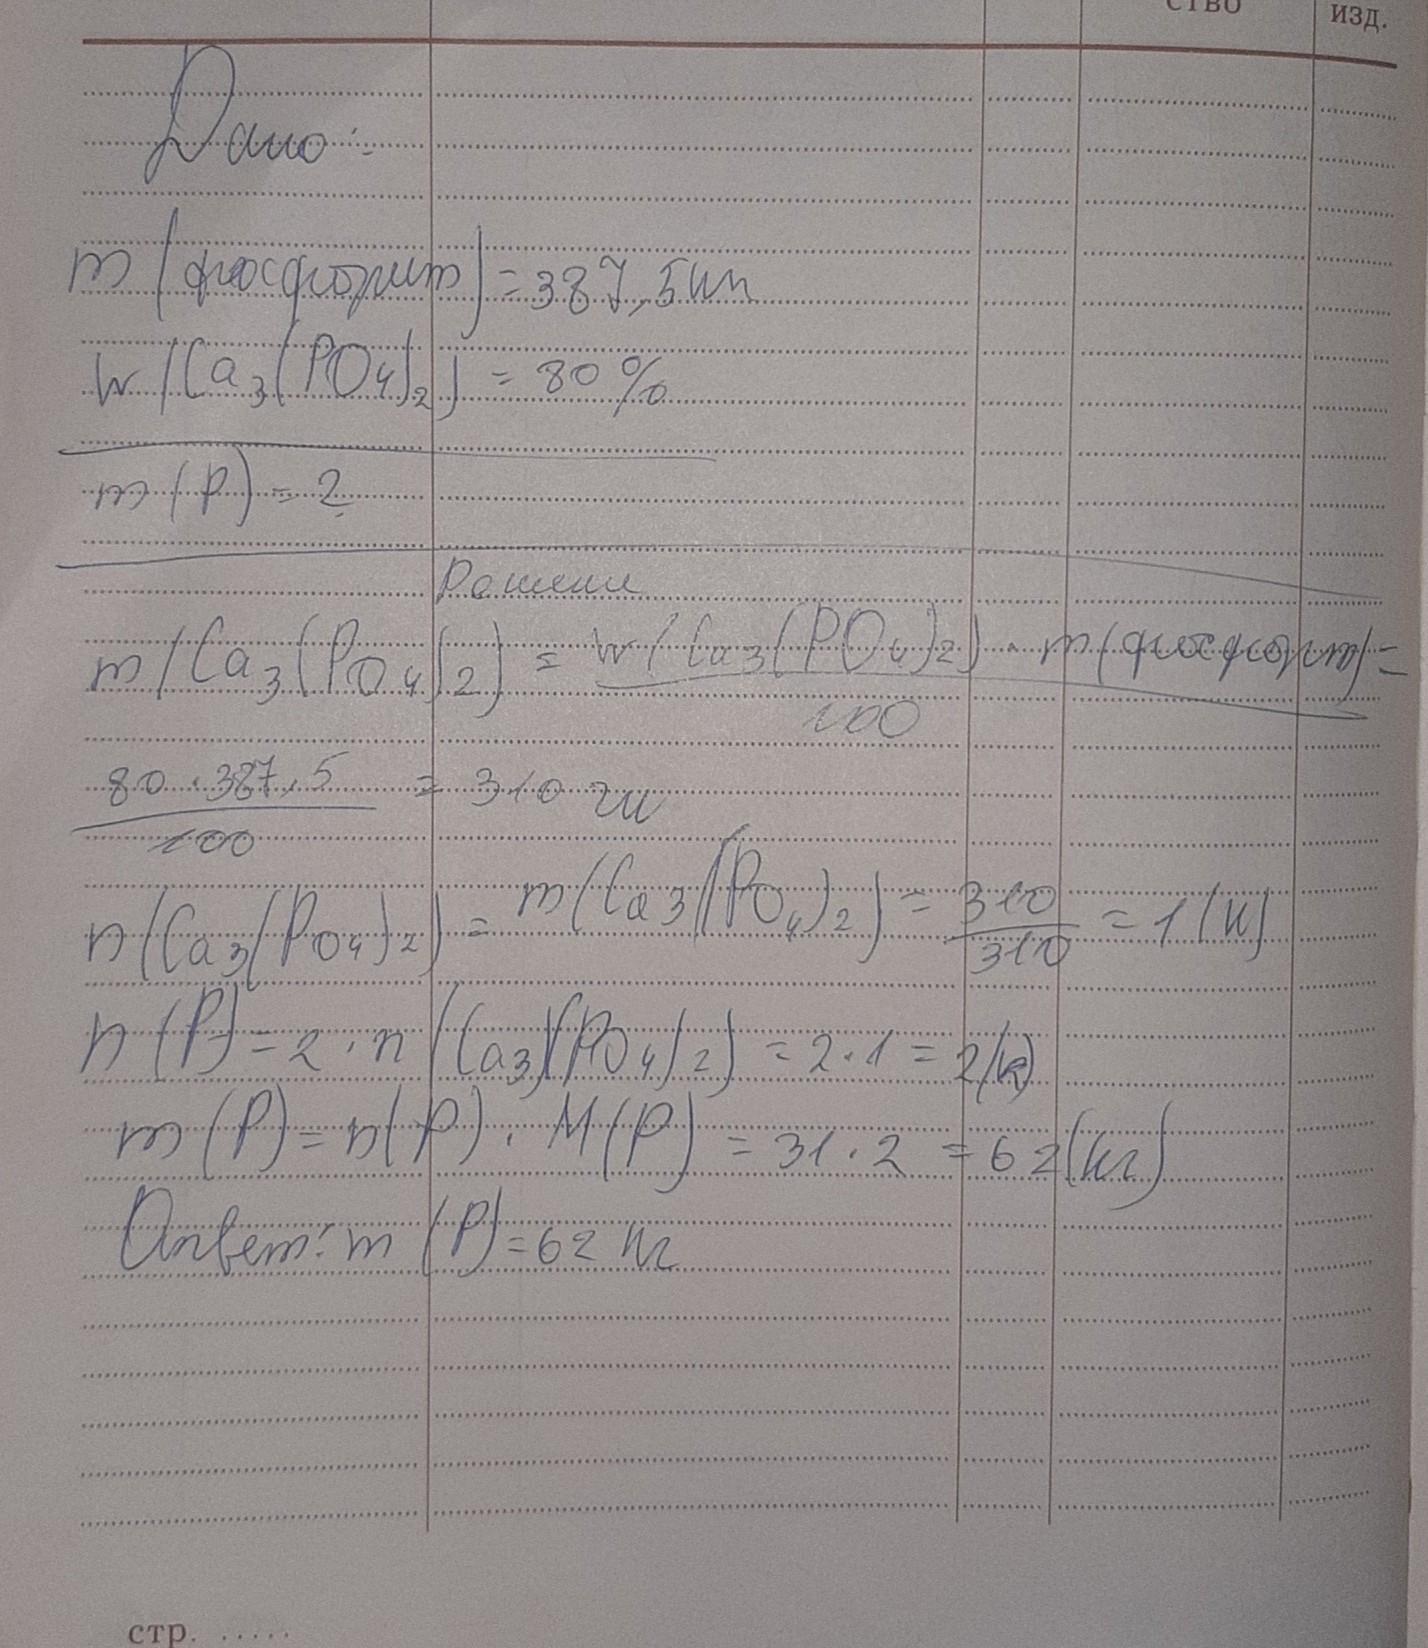 ство изд.
Дано:
m(фосфорит) = 387,5 кг
w(Ca3(PO4)2) = 80%
m(P) = ?
Решение
m(Ca3(PO4)2) = w(Ca3(PO4)2) · m(фосфорит) =
100
80 · 387,5 = 310 кг
100
n(Ca3(PO4)2) = m(Ca3(PO4)2) = 310 = 1 (к)
310
n(P) = 2 · n(Ca3(PO4)2) = 2 · 1 = 2(к)
m(P) = n(P) · M(P) = 31 · 2 = 62(кг)
Ответ: m(P) = 62 кг
стр. .....